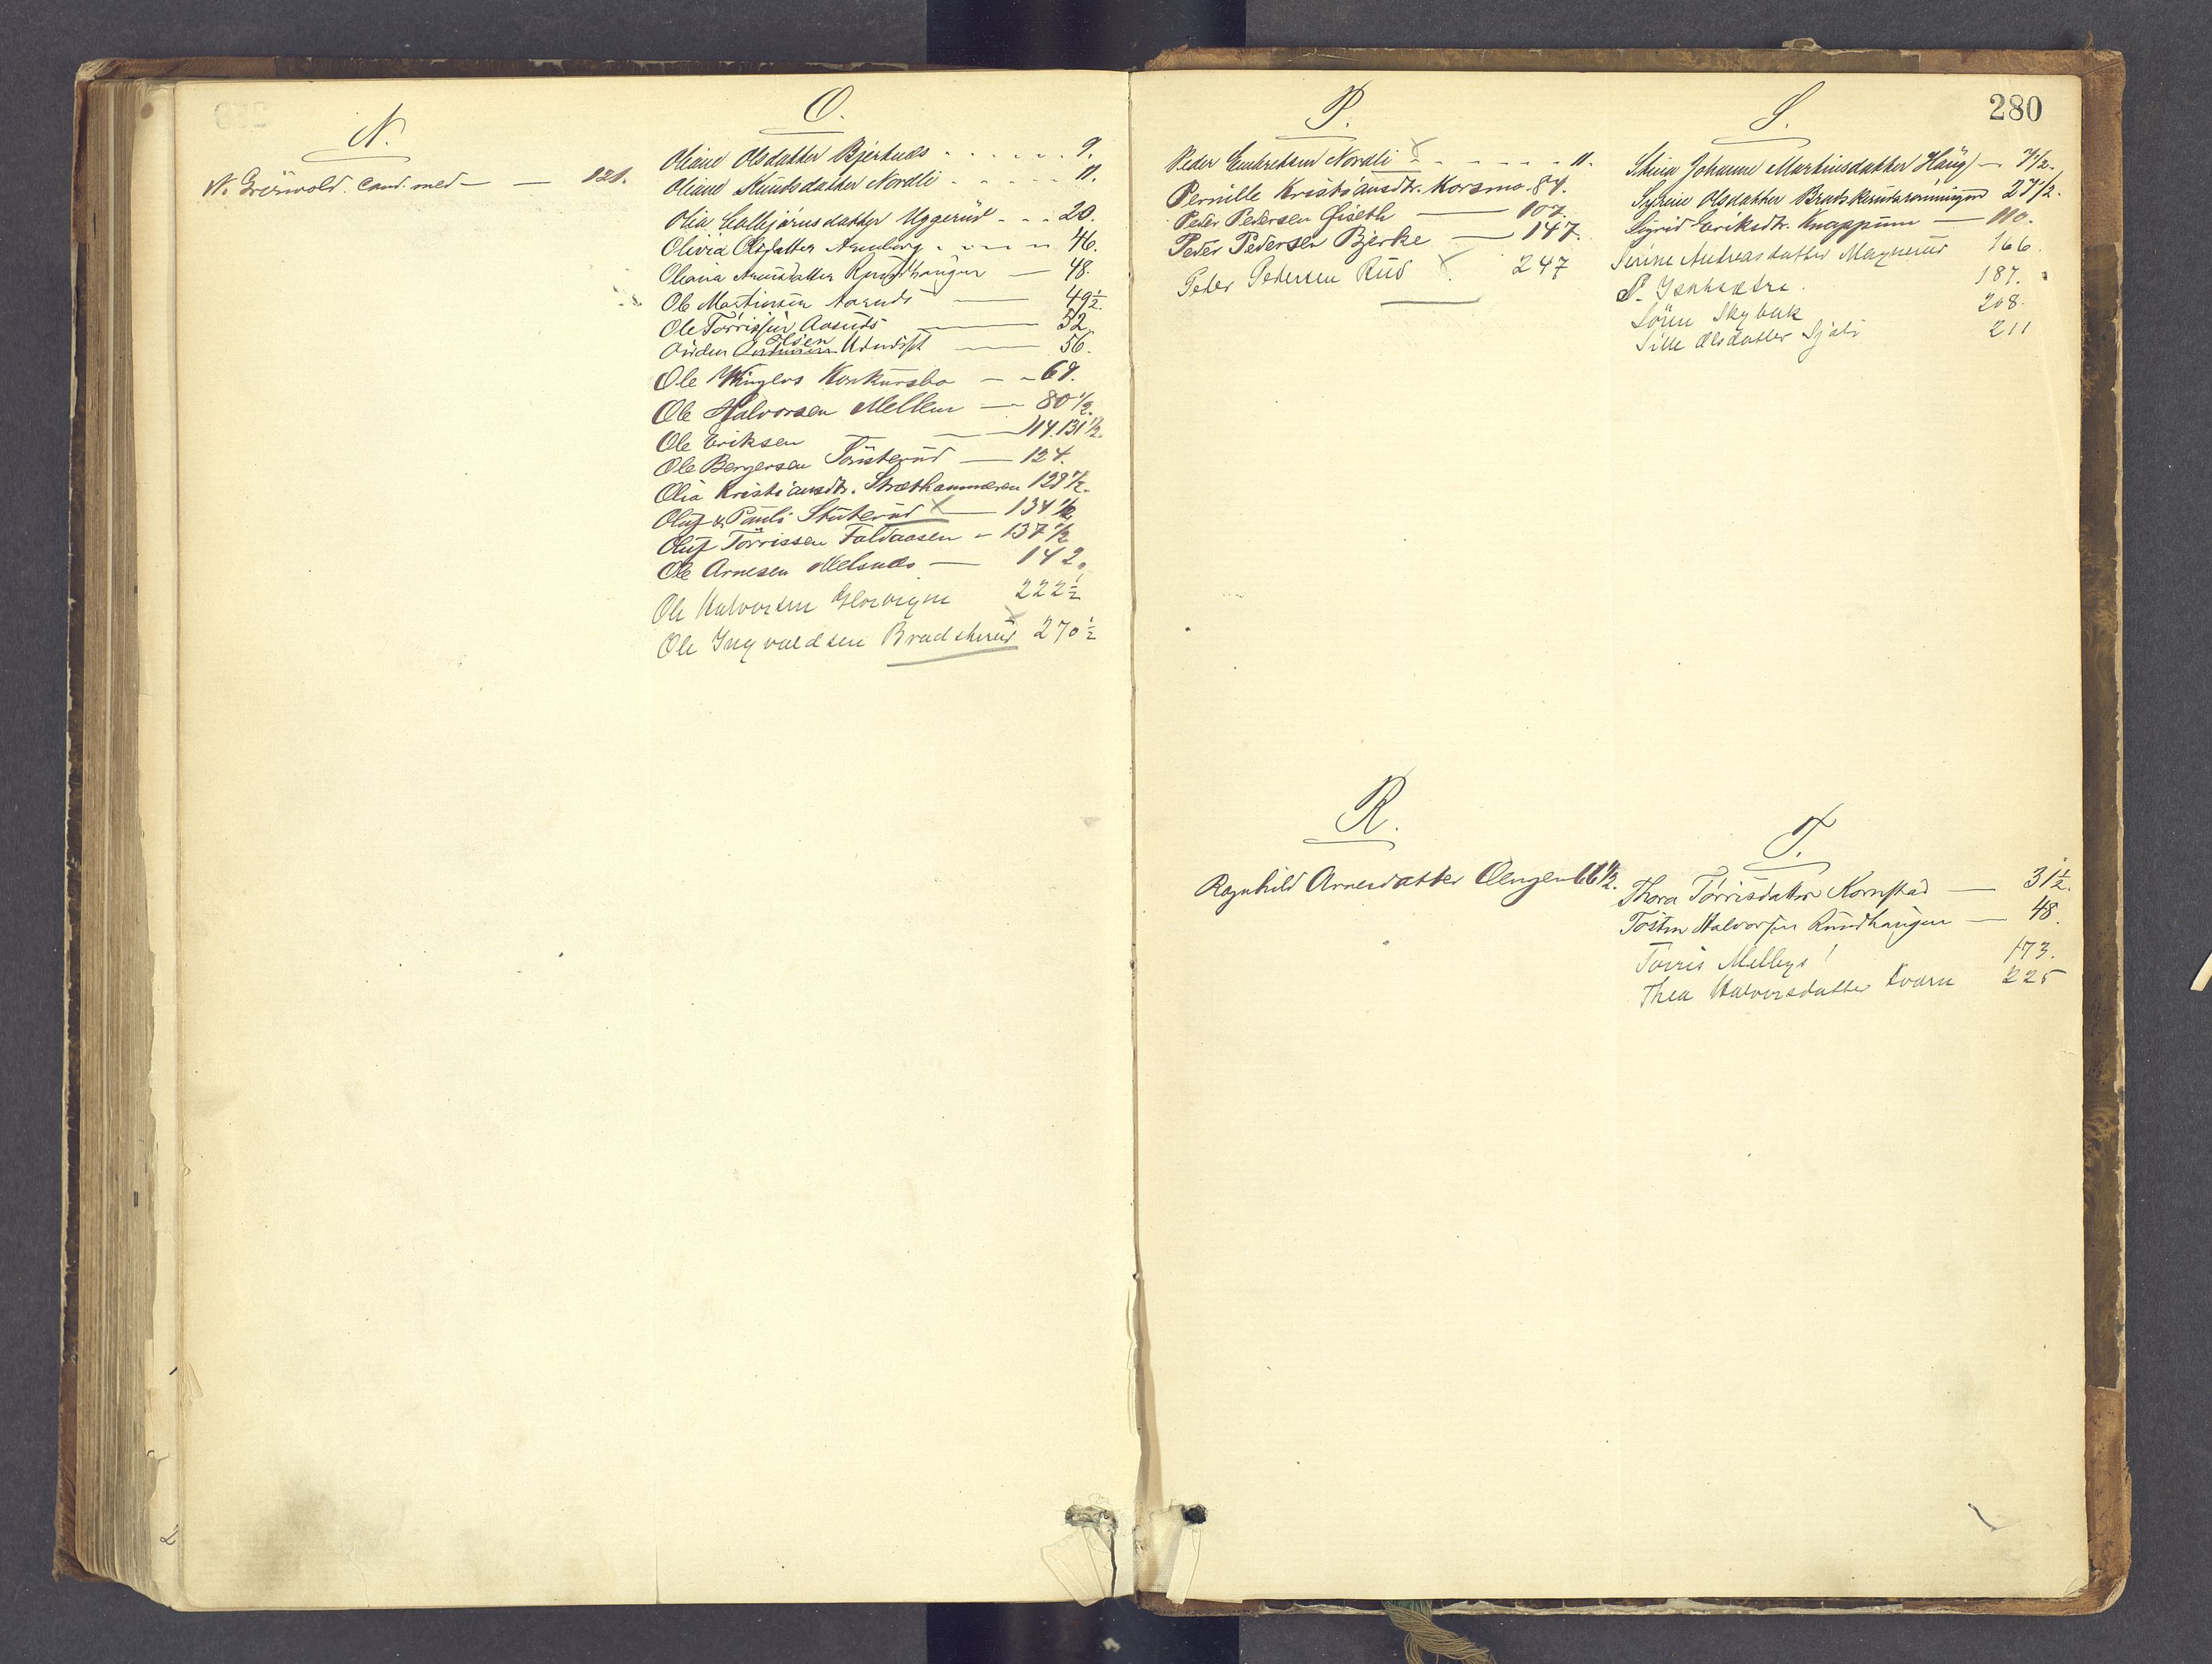 N.
N. Grönvold. cand. med — — 121.
O.
Oliane Olsdatter Bjertnæs - - - - - 9.
Oliane Knudsdatter Nordli - - - - - 11.
Olia Colbjørnsdatter Uggerud - - - 20.
Olivia Olsdatter Arneberg - - - - 46.
Oliana Arnesdatter Rundhaugen — 48.
Ole Martinsen Aasnæs — 49 1/2.
Ole Törrissen Aasnæs — 52
Auden Olsen — 56.
Ole Vinger's Konkursbo — - 69.
Ole Halvorsen Mellem — 80 1/2.
Ole Eriksen — — 114. 131 1/2.
Ole Bergersen — 124.
Olia Kristiansdtr. Stræthammeren 129 1/2.
Oluf & Pauli Stuberud x — 134 1/2
Oluf Törrissen Faldaasen - 137 1/2
Ole Arnesen Melsnæs — 142.
Ole Halvorsen 222 1/2
Ole Ingvaldsen Bradskerud x 270 1/2
P.
280
Peder Embretsen Nordli x - - - - - 11.
Pernille Kristiansdtr. Korsmo. 84.
Peder Pedersen Giseth — 107.
Peder Pedersen Bjerke — 147.
Peder Pedersen Rud x 247
S.
Johanne Martinsdatter Haug — 7 1/2.
Syrine Olsdatter 27 1/2.
Sigrid Eriksdtr. Knappum — 110.
Serine Andreasdatter Magnerud 166.
S. 187.
Sören Skybak 208.
Sille Olsdatter Sjøli 211
R.
Ragnhild Arnesdatter Oengen 66 1/2.
T.
Thora Törrisdatter Kornstad — 31 1/2.
Tosten Halvorsen Rundhaugen — 48.
Törris Melbys 173.
Thea Halvorsdatter Kvarn 225